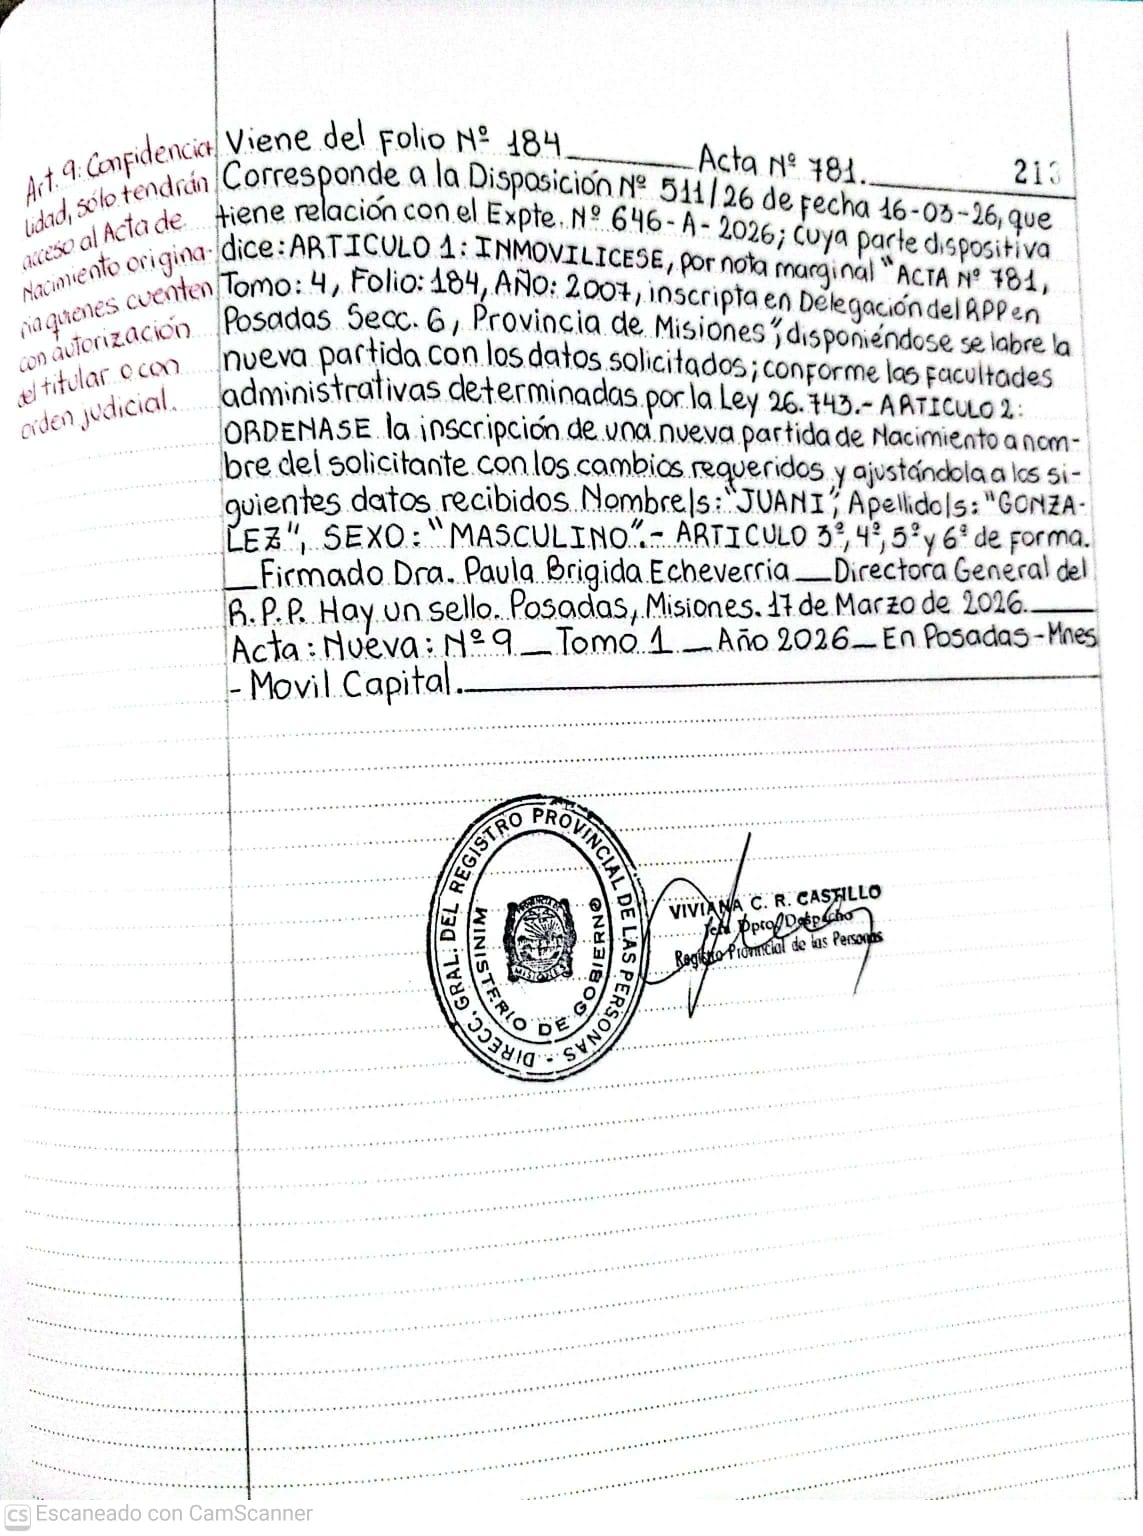 Art. 9: Confidencia
lidad, sólo tendrán
acceso al Acta de
Nacimiento origina-
ria quienes cuenten
con autorización
del titular o con
orden judicial.
Viene del Folio Nº 184 ______ Acta Nº 781. ______ 213
Corresponde a la Disposición Nº 511/26 de fecha 16-03-26, que
tiene relación con el Expte. Nº 646-A-2026; cuya parte dispositiva
dice: ARTICULO 1: INMOVILICESE, por nota marginal "ACTA Nº 781,
Tomo: 4, Folio: 184, AÑO: 2007, inscripta en Delegación del RPP en
Posadas Secc. 6, Provincia de Misiones", disponiéndose se labre la
nueva partida con los datos solicitados; conforme las facultades
administrativas determinadas por la Ley 26.743.- ARTICULO 2:
ORDENASE la inscripción de una nueva partida de Nacimiento a nom-
bre del solicitante con los cambios requeridos y ajustándola a los si-
guientes datos recibidos Nombre/s: "JUANI", Apellido/s: "GONZA-
LEZ", SEXO: "MASCULINO".- ARTICULO 3º, 4º, 5º y 6º de forma.
__ Firmado Dra. Paula Brigida Echeverria __ Directora General del
R.P.P. Hay un sello. Posadas, Misiones. 17 de Marzo de 2026. ____
Acta: Nueva: Nº 9 __ Tomo 1 __ Año 2026 _ En Posadas - Mnes
- Movil Capital. ____
DIRECC. GRAL. DEL REGISTRO PROVINCIAL DE LAS PERSONAS -
MINISTERIO DE GOBIERNO
PROVINCIA DE
MISIONES
VIVIANA C. R. CASTILLO
Jefa Dpto. Despacho
Registro Provincial de las Personas
CS Escaneado con CamScanner